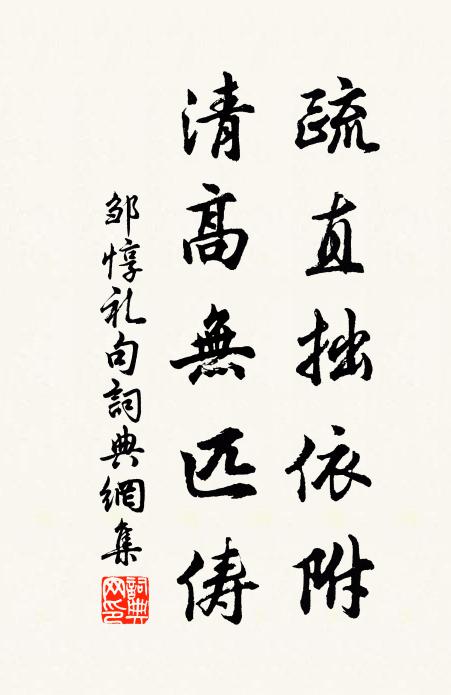 疏直拙依附
清高無匹儔
邹惇礼句詞典網集
詞典网印